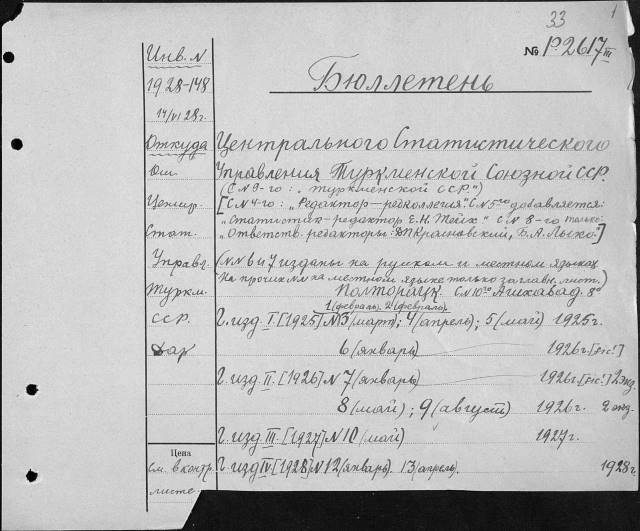 33
1
№ Р.2617 III
Инв. N
1928-148
14/VI 28 г.
Откуда
От
Центр.
Стат.
Управл.
Туркм.
ССР.
Дар
Цена
см. в контр.
листе
Бюллетень
Центрального Статистического
Управления Туркменской Союзной ССР.
(С N 9-го: „Туркменской ССР.")
[С N 4-го: „Редактор-редколлегия". С N 5-го добавляется:
„Статистик-редактор Е.Н. Пейх" с N 8-го только:
„Ответств. редакторы: Д.П. Красновский, Б.А. Лыко."]
(NN 6 и 7 изданы на русском и местном языках
На прочих NN на местном языке только заглавн. лист.)
Полторацк. с N 10-го Ашхабад. 8°
1 (февраль). 2 (февраль).
Г. изд. I. [1925] N 3 (март); 4 (апрель); 5 (май) 1925 г.
6 (январь) 1926 г. [sic!]
Г. изд. II. [1926] N 7 (январь) 1926 г. [sic!] 2 экз.
8 (май); 9 (август) 1926 г. 2 экз.
Г. изд. III. [1927] N 10 (май) 1927 г.
Г. изд IV. [1928] N 12 (январь). 13 (апрель). 1928 г.